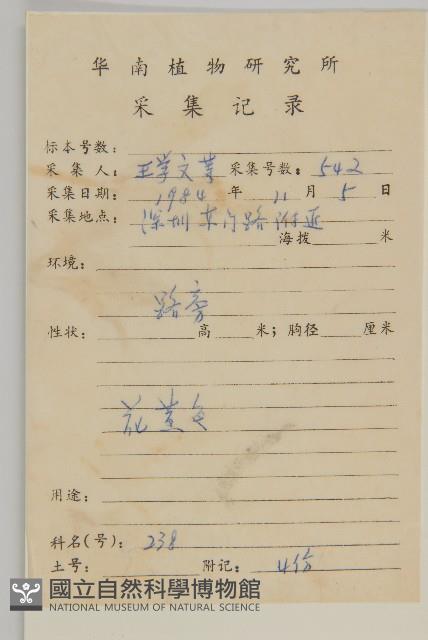 华南植物研究所
采集记录
标本号数：
采集人：王学文等 采集号数：542
采集日期：1984年11月5日
采集地点：深圳东门路附近
海拨 米
环境：
路旁
性状： 高 米；胸径 厘米
花黄色
用途：
科名(号)：238
土号： 附记：4份
國立自然科學博物館
NATIONAL MUSEUM OF NATURAL SCIENCE